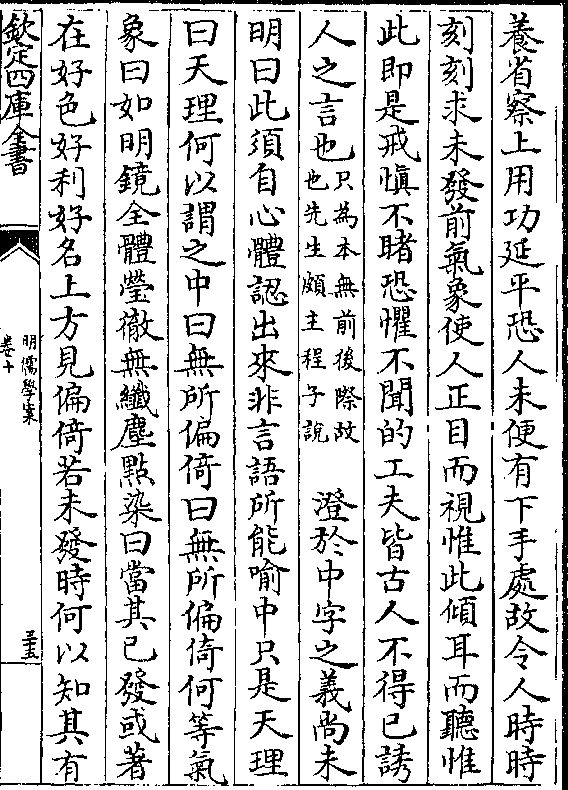 養省察上用功延平恐人未便有下手處故令人時時
刻刻求未發前氣象使人正目而視惟此傾耳而聽惟
此即是戒慎不睹恐懼不聞的工夫皆古人不得已誘
人之言也只為本無前後際故也先生頗主程子說 澄於中字之義尚未
明曰此須自心體認出來非言語所能喻中只是天理
曰天理何以謂之中曰無所偏倚曰無所偏倚何等氣
象曰如明鏡全體瑩徹無纖塵點染曰當其已發或著
在好色好利好名上方見偏倚若未發時何以知其有
欽定四庫全書
明儒學案
卷十
三五